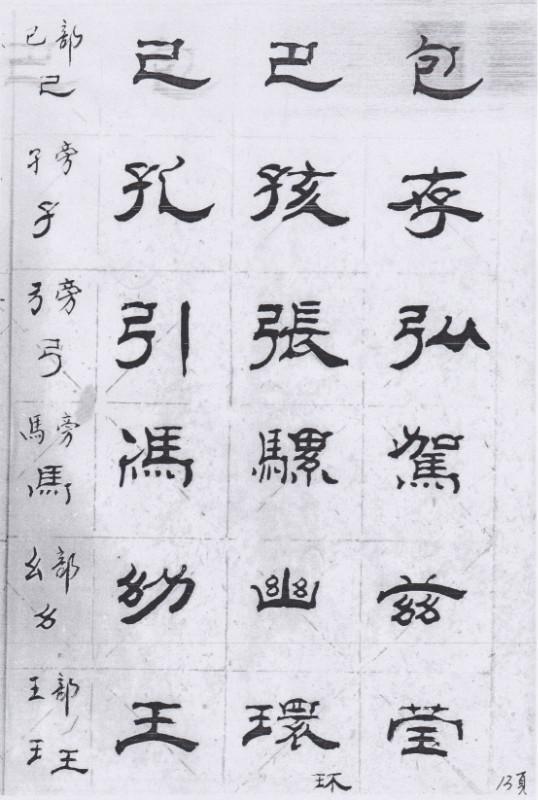 己部 己 己 巴 包
子旁 子 孔 孩 存
弓旁 弓 引 張 弘
馬旁 馬 馮 騾 駕
幺部 幺 幼 幽 茲
王部 王 王 王 環 瑩
环
13頁